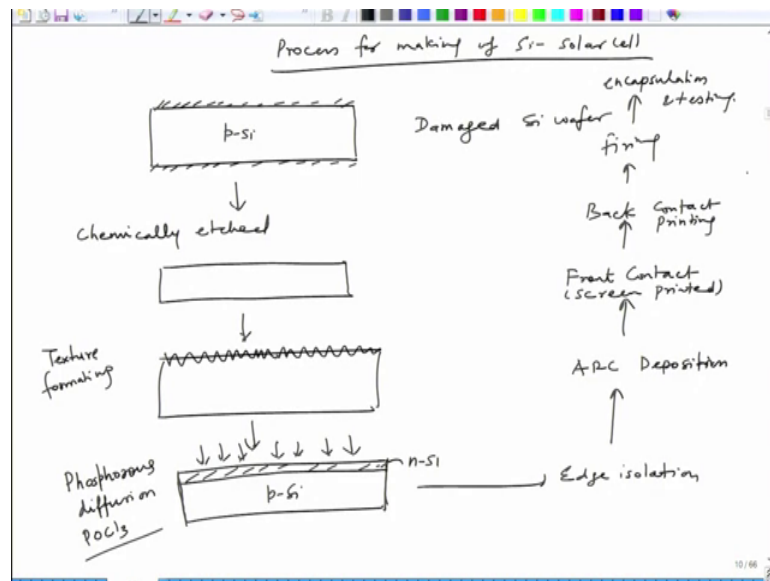 Process for making of Si-solar cell
p-Si
Damaged Si wafer
Chemically etched
Texture
formating
Phosphorous
diffusion
POCl3
n-Si
p-Si
Edge isolation
ARC Deposition
Front Contact
(screen printed)
Back Contact
Printing
firing
encapsulation
& testing.
10/66